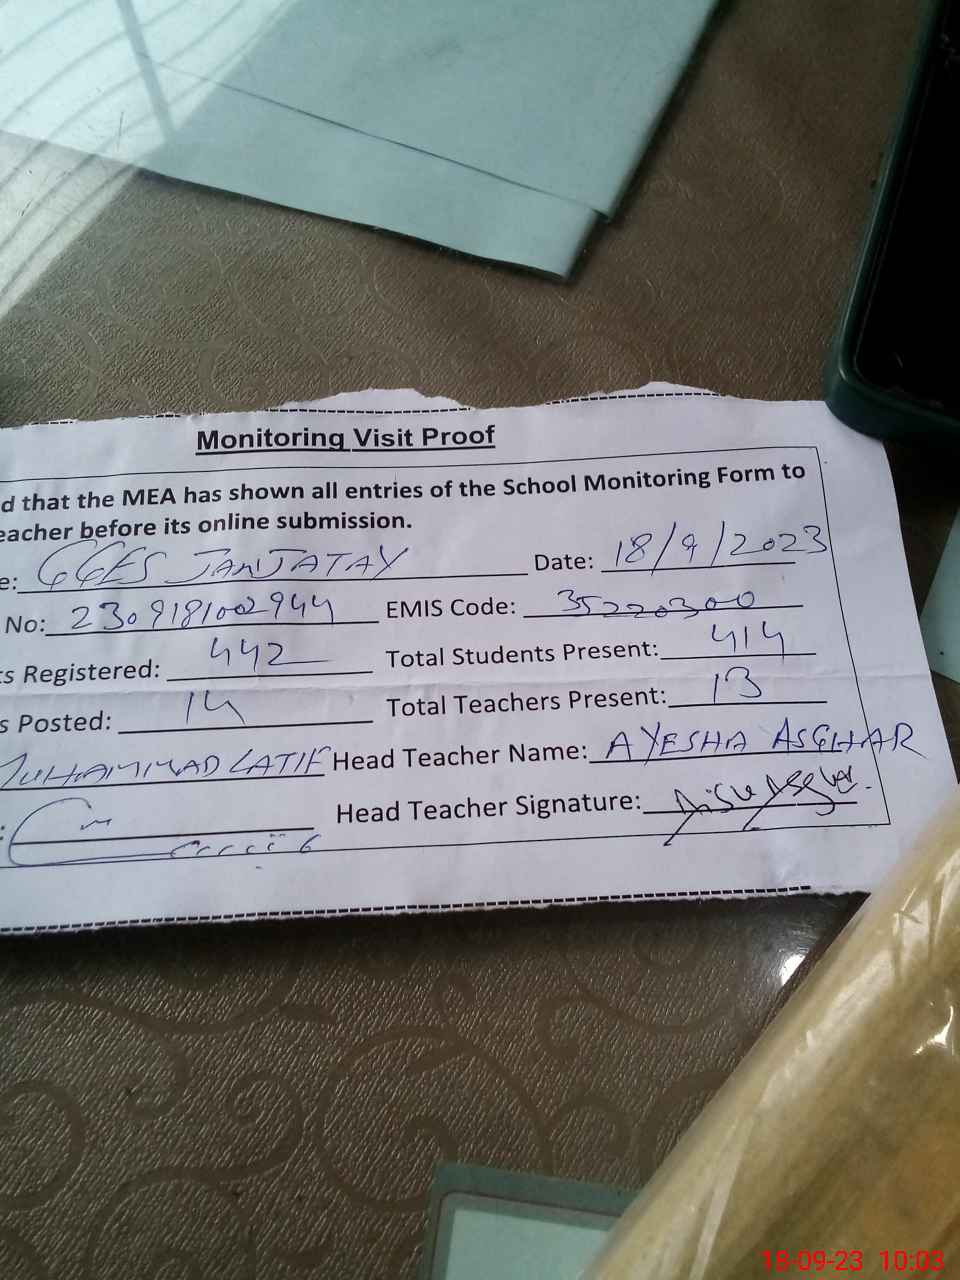 Monitoring Visit Proof
d that the MEA has shown all entries of the School Monitoring Form to
eacher before its online submission.
e: GGES JANJATAY Date: 18/9/2023
No: 2309181002944 EMIS Code: 35220300
ts Registered: 442 Total Students Present: 414
s Posted: 14 Total Teachers Present: 13
MUHAMMAD LATIF Head Teacher Name: AYESHA ASGHAR
: Head Teacher Signature:
18-09-23 10:03